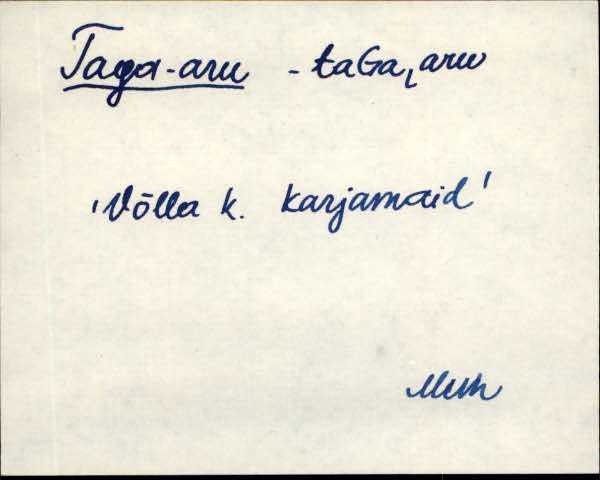 Taga-aru - taGaˌaru
'Võlla k. karjamaid'
Muh